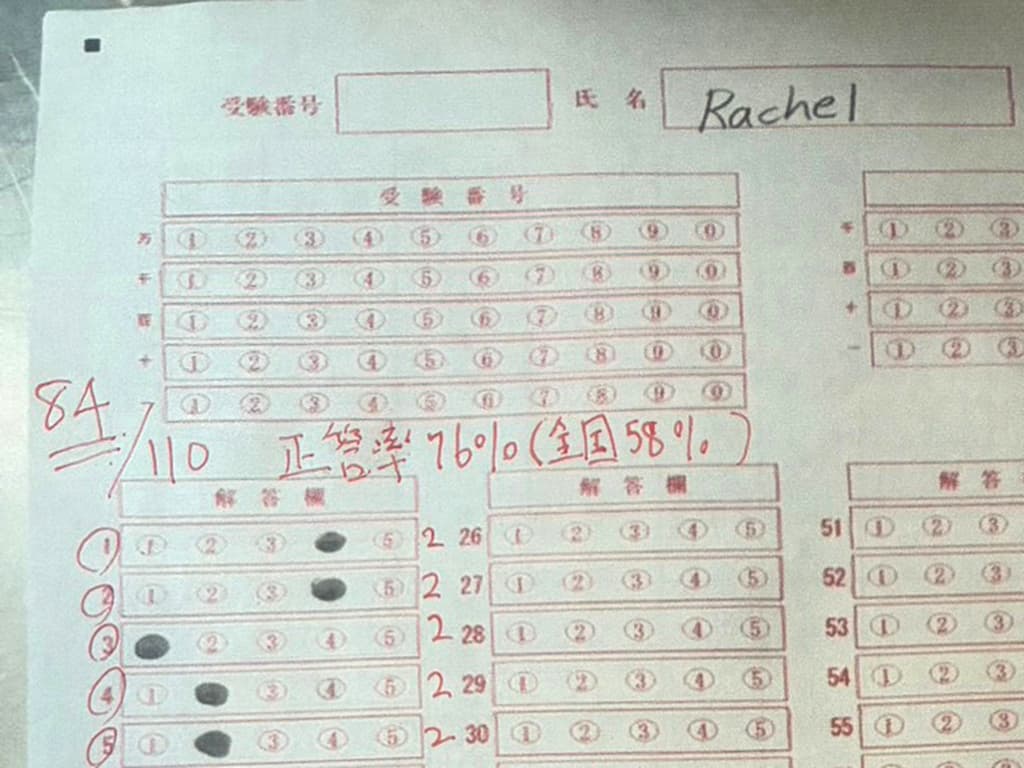 受験番号 氏名 Rachel
受験番号
万 ① ② ③ ④ ⑤ ⑥ ⑦ ⑧ ⑨ ⓪ 千 ① ② ③
千 ① ② ③ ④ ⑤ ⑥ ⑦ ⑧ ⑨ ⓪ 百 ① ② ③
百 ① ② ③ ④ ⑤ ⑥ ⑦ ⑧ ⑨ ⓪ 十 ① ② ③
十 ① ② ③ ④ ⑤ ⑥ ⑦ ⑧ ⑨ ⓪ 一 ① ② ③
① ② ③ ④ ⑤ ⑥ ⑦ ⑧ ⑨ ⓪
84/110 正答率76%(全国58%)
解答欄 解答欄 解答
1 ① ② ③ ⑤ 2 26 ① ② ③ ④ ⑤ 51 ① ② ③
2 ① ② ③ ⑤ 2 27 ① ② ③ ④ ⑤ 52 ① ② ③
3 ② ③ ④ ⑤ 2 28 ① ② ③ ④ ⑤ 53 ① ② ③
4 ① ③ ④ ⑤ 2 29 ① ② ③ ④ ⑤ 54 ① ② ③
5 ① ③ ④ ⑤ 2 30 ① ② ③ ④ ⑤ 55 ① ② ③